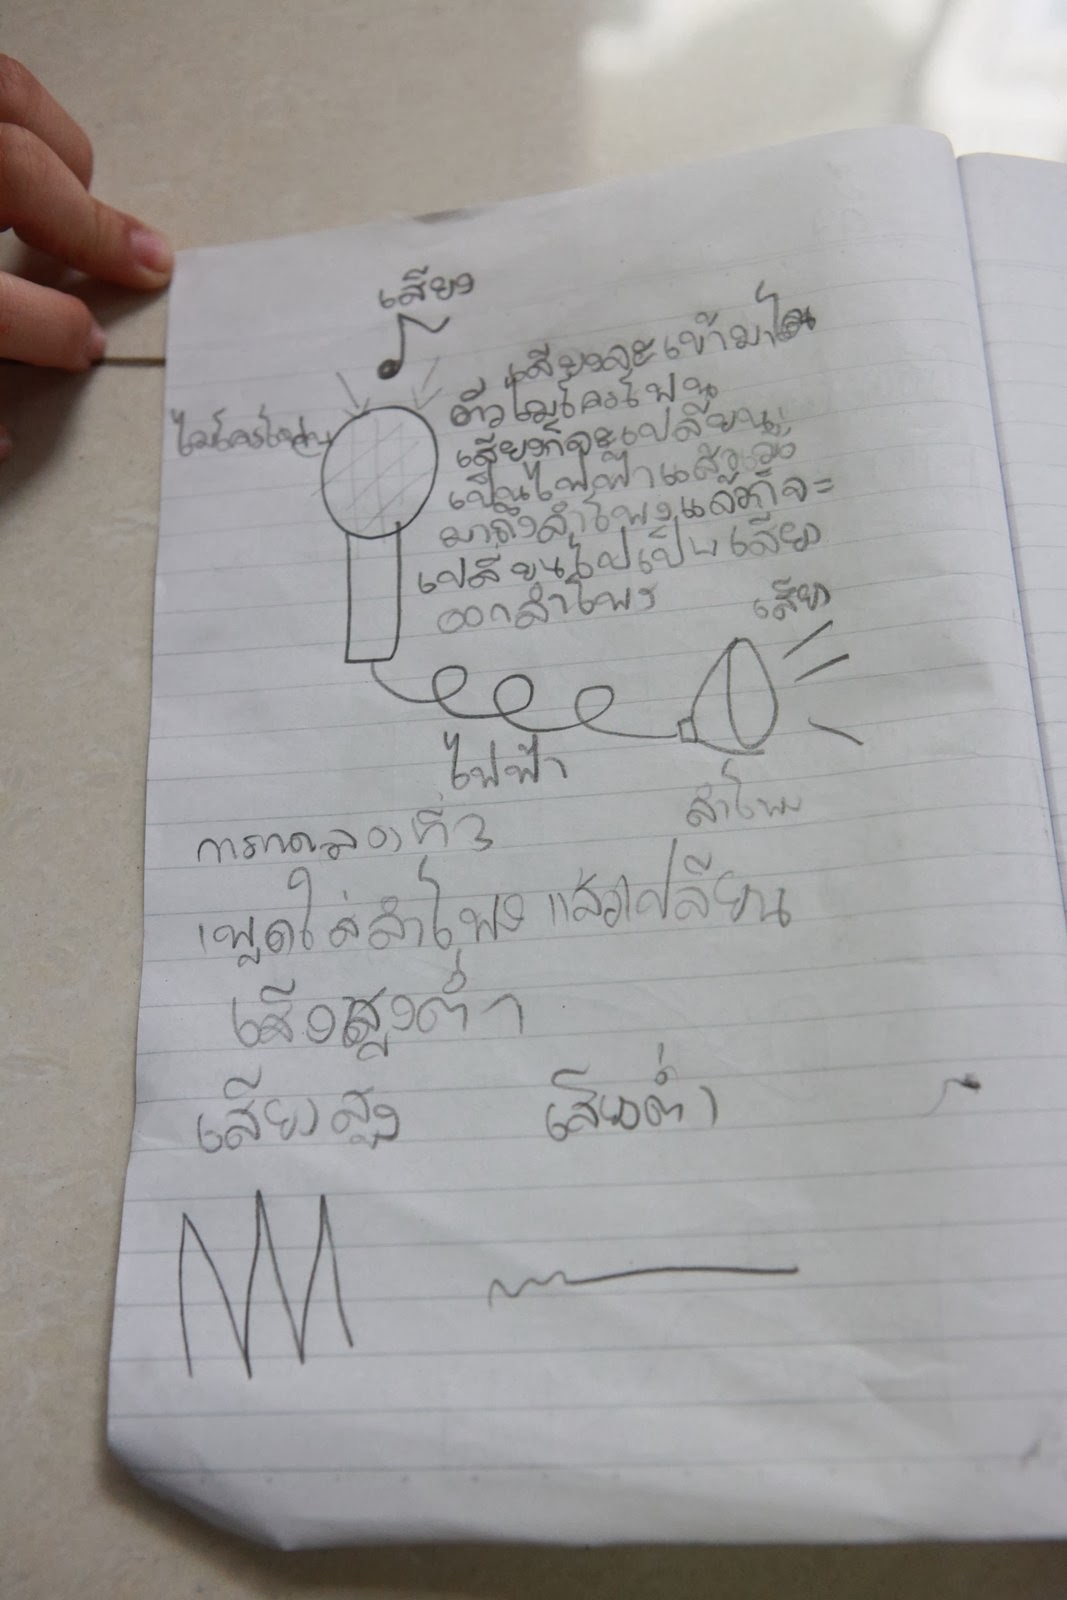 เสียง
เสียงจะเข้ามาใน
ไมโครโฟน
ตัวไมโครโฟน
เสียงก็จะเปลี่ยน
เป็นไฟฟ้าแล้ววิ่ง
มาถึงลำโพงแล้วก็จะ
เปลี่ยนไปเป็นเสียง
ออกลำโพง
เสียง
ไฟฟ้า
ลำโพง
การทดลองที่ 3
พูดใส่ลำโพง แล้วเปลี่ยน
เสียงสูงต่ำ
เสียงสูง เสียงต่ำ